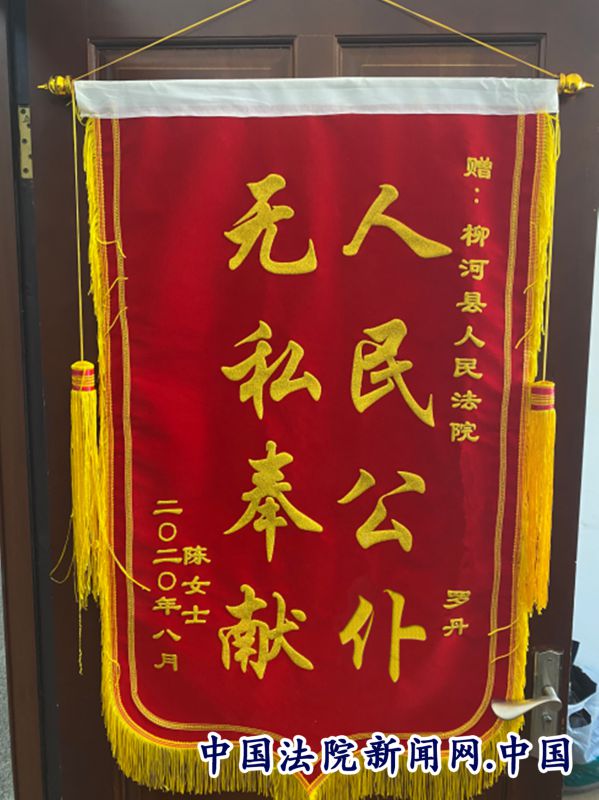 赠：柳河县人民法院
罗丹
人民公仆
无私奉献
陈女士
二〇二〇年八月
中国法院新闻网.中国